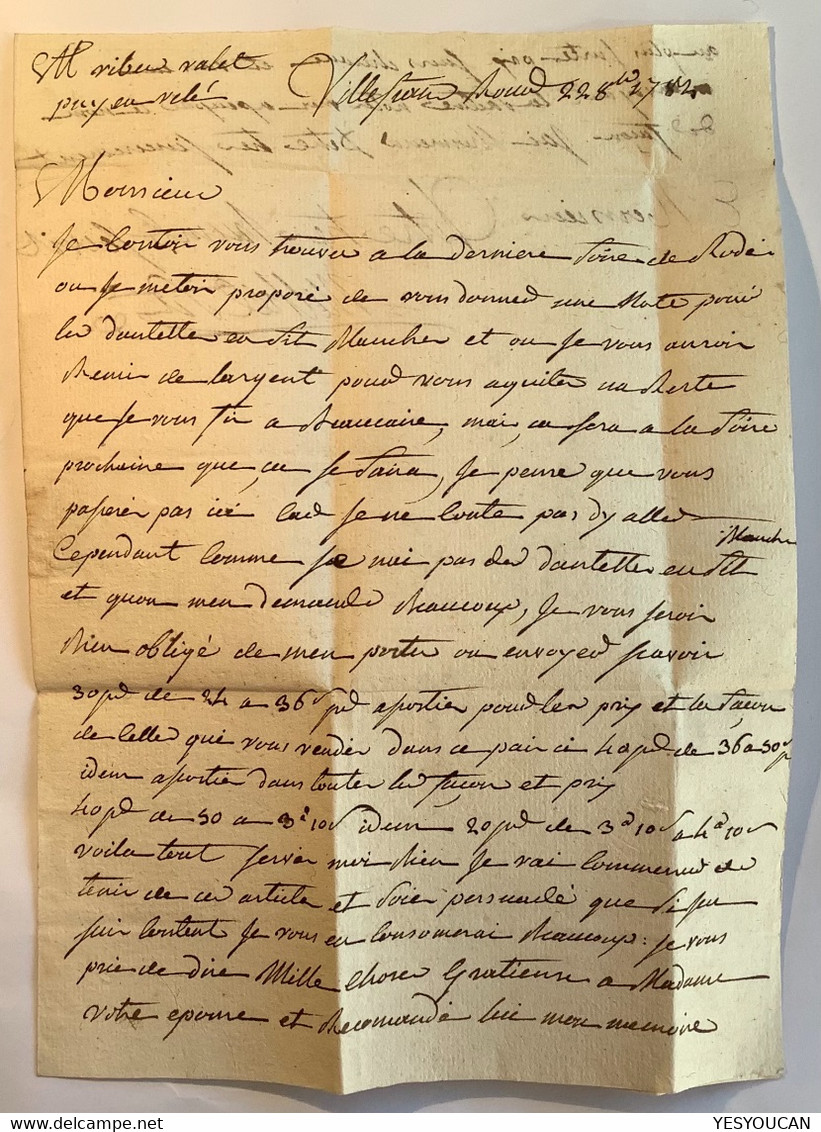 M ribeu valet
puy en velé
Villefranche Roud 22 8bre 1784
Monsieur
Je Contoir vous trouver a la derniere foire de Rodé
ou Je metoir proposé de vous donner une Note pour
les dantelles en fil Blancher et ou Je vous auroir
Remir de largent pour vous aquiter un Reste
que Je vous fir a Beaucaire, mai, ce sera a la foire
prochaine que, ce se faira, Je pense que vous
passerer pas ici Car Je ne Conte pas dy aller
Cependant Comme Je nai pas des dantelles en fil Blancher
et quon men demande Beaucoup, Je vous seroir
Bien obligé de men porter ou envoyer scavoir
30 ps de 24 a 36 s ps assortier pour les prix et la façon
de Celle que vous vender dans ce pair ci 40 ps de 36 a 50 s p
idem assortier dans touter les façon et prix
40 ps de 50 a 3# 10 s idem 20 ps de 3# 10 s a 4# 10 s
voila tout server moi Bien Je vai Commencer de
tenir de cet article et Soier persuadé que Si Jen
suir Content Je vous en Consomerai Beaucoup: Je vous
prie de dire Mille Choser Gratieuser a Madame
votre epouse et Recomandé lui mon memoire
YESYOUCAN